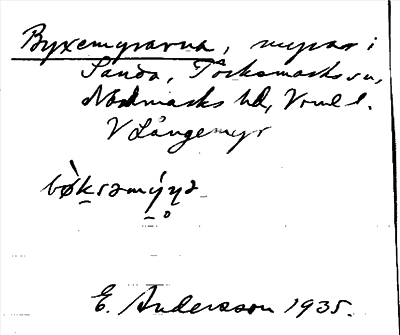 Byxemyrarna, myrar i
Sanda, Töcksmarks sn,
Nordmarks hd, Vrml.
V Långemyr
bø̀ksəmýɳa
E. Andersson 1935.